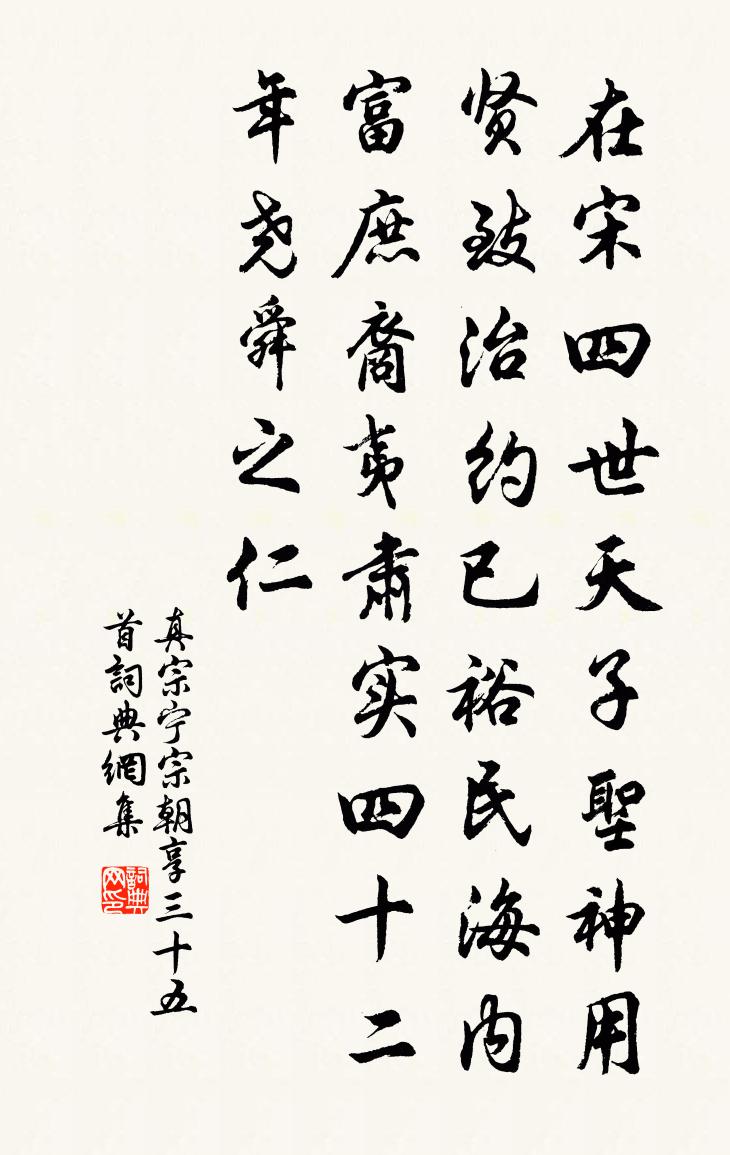 在宋四世天子聖神用
贤致治约已裕民海内
富庶裔夷肃实四十二
年尧舜之仁
真宗宁宗朝享三十五
首詞典網集
詞典
网印